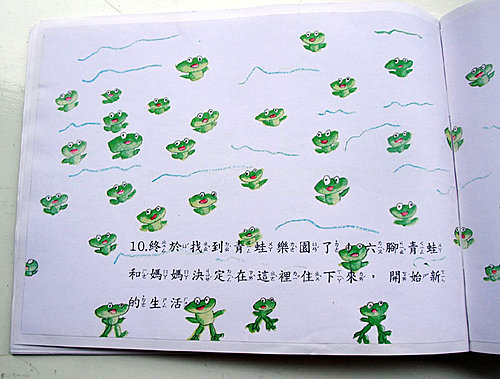 10.終於找到青蛙樂園了！六腳青蛙
和媽媽決定在這裡住下來，開始新
的生活